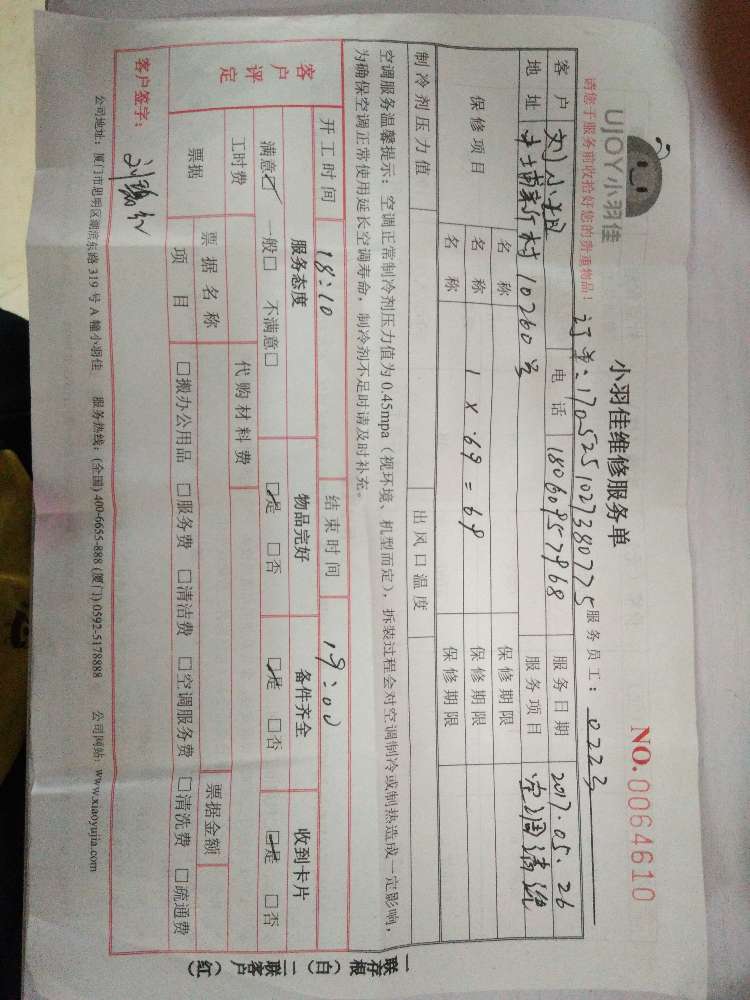 UJOY小羽佳
小羽佳维修服务单
NO. 0064610
请您于服务前收拾好您的贵重物品！
订单：1705251027380775 服务员工：0223
客户 刘小姐 电话 18060957968 服务日期 2017.05.26
地址 新村10260号 服务项目 空调清洗
保修项目 名称 保修期限
名称 1×69=69 保修期限
名称 保修期限
制冷剂压力值 出风口温度
空调服务温馨提示：空调正常制冷剂压力值为0.45mpa（视环境、机型而定），拆装过程会对空调制冷或制热造成一定影响，
为确保空调正常使用延长空调寿命，制冷剂不足时请及时补充。
开工时间 18:10 结束时间 19:00
客户评定 服务态度 物品完好 备件齐全 收到卡片
满意☑ 一般□ 不满意□ ☑是 □否 ☑是 □否 ☑是 □否
工时费 代购材料费
票据 票据名称 票据金额
项目 □搬办公用品 □服务费 □清洁费 □空调服务费 □清洗费 □疏通费
客户签字：
公司地址：厦门市思明区湖滨东路319号A幢小羽佳 服务热线：(全国) 400-6655-888 (厦门) 0592-5178888 公司网站：www.xiaoyujia.com
一联存根（白）二联客户（红）